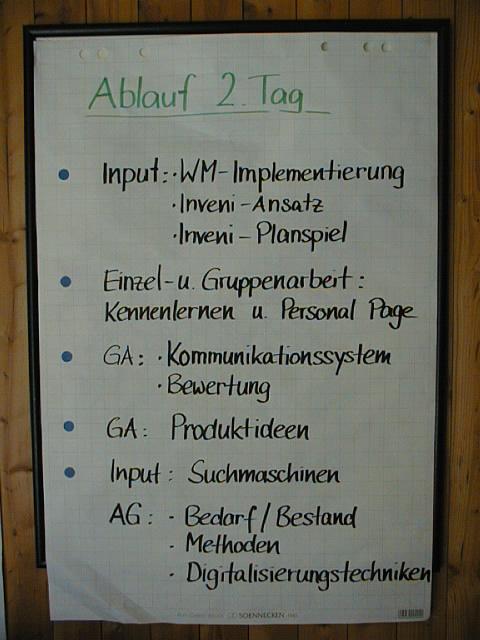 Ablauf 2. Tag
• Input: · WM-Implementierung
· Inveni-Ansatz
· Inveni-Planspiel
• Einzel- u. Gruppenarbeit:
Kennenlernen u. Personal Page
• GA: · Kommunikationssystem
· Bewertung
• GA: Produktideen
• Input: Suchmaschinen
AG: · Bedarf/Bestand
· Methoden
· Digitalisierungstechniken
SOENNECKEN